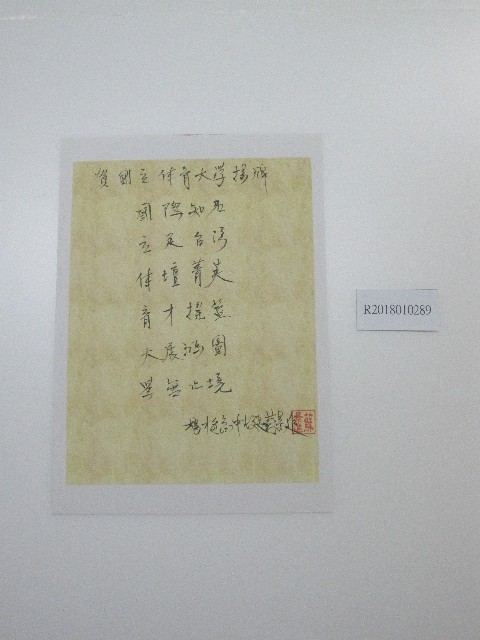 賀國立体育大学揭牌
國際知名
立足台湾
体壇菁英
育才搖籃
大展鴻圖
學無止境
楊梅高中校長
R2018010289